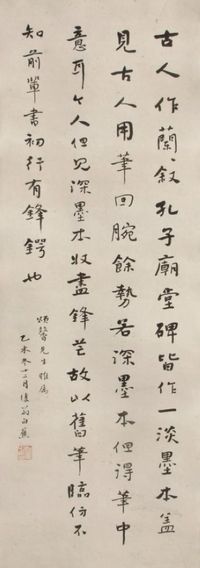 古人作蘭叙孔子廟堂碑皆作一淡墨本蓋
見古人用筆回腕餘勢若深墨本但得筆中
意耳今人但見深墨本收盡鋒芒故以舊筆臨仿不
知前輩書初行有鋒鍔也
先生雅属
乙未冬十二月復翁白蕉